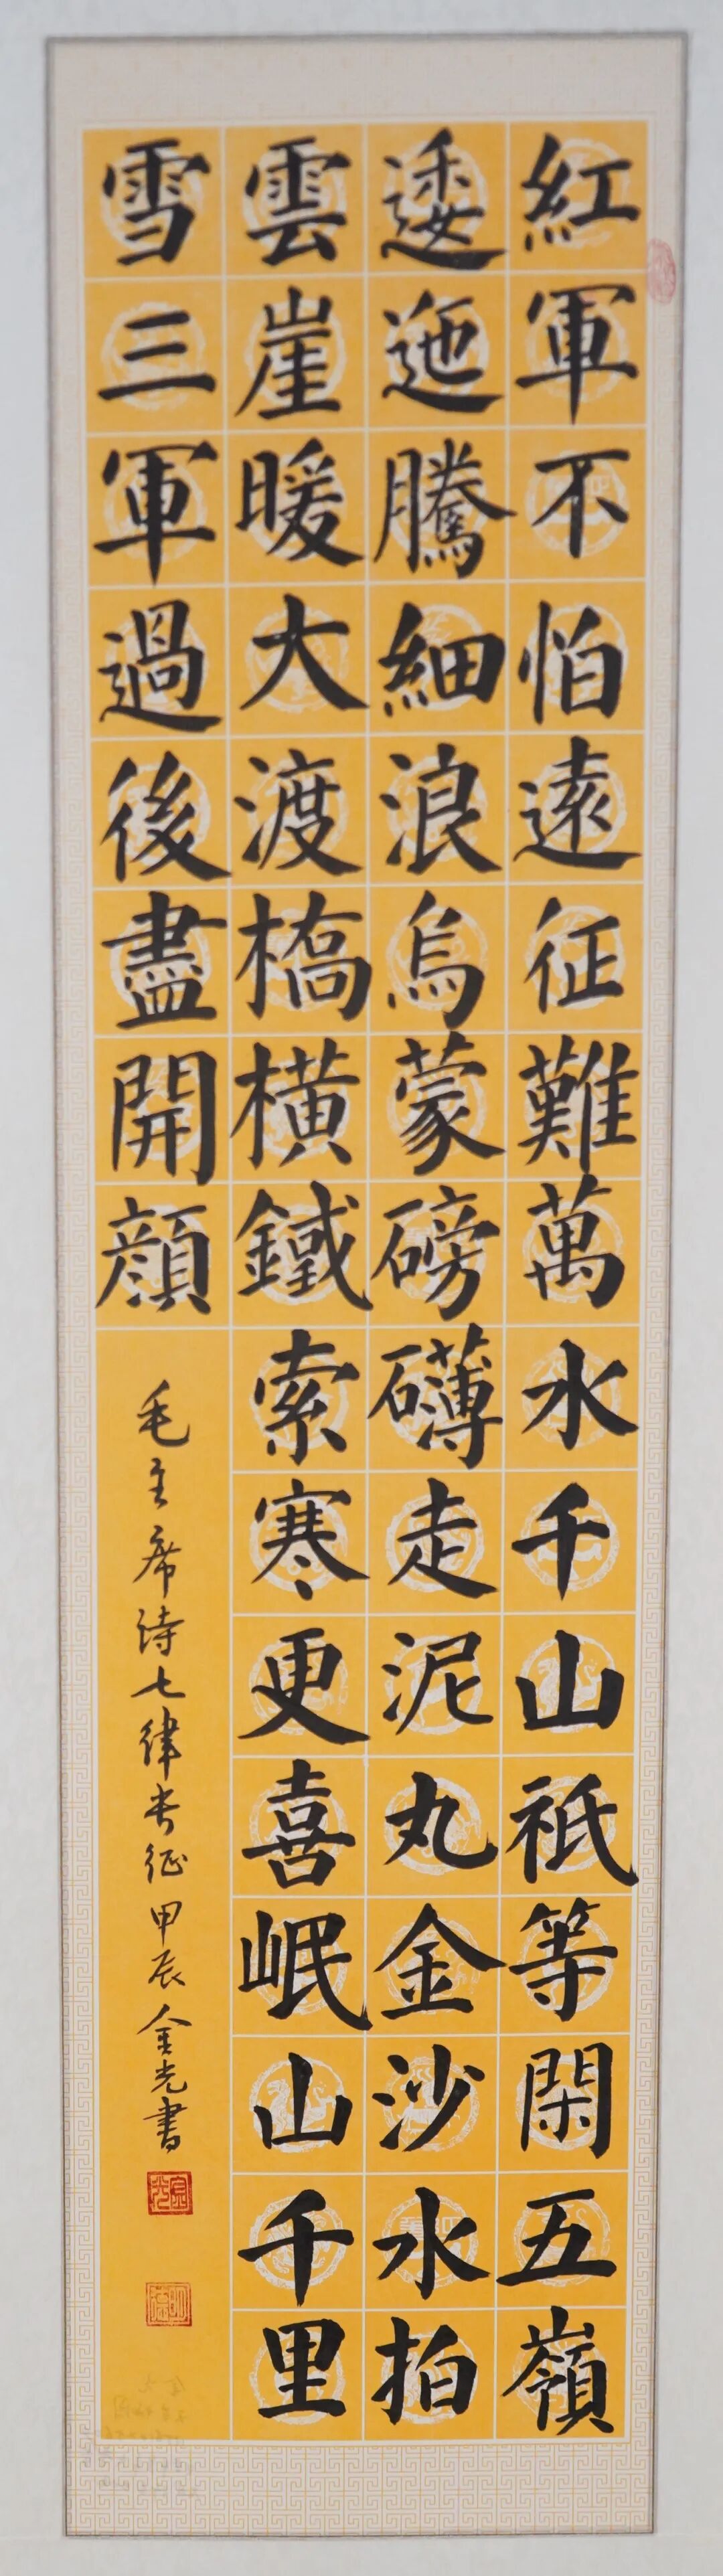 紅軍不怕遠征難萬水千山祇等閑五嶺
逶迤騰細浪烏蒙磅礴走泥丸金沙水拍
雲崖暖大渡橋橫鐵索寒更喜岷山千里
雪三軍過後盡開顏
毛主席詩七律长征甲辰金光書